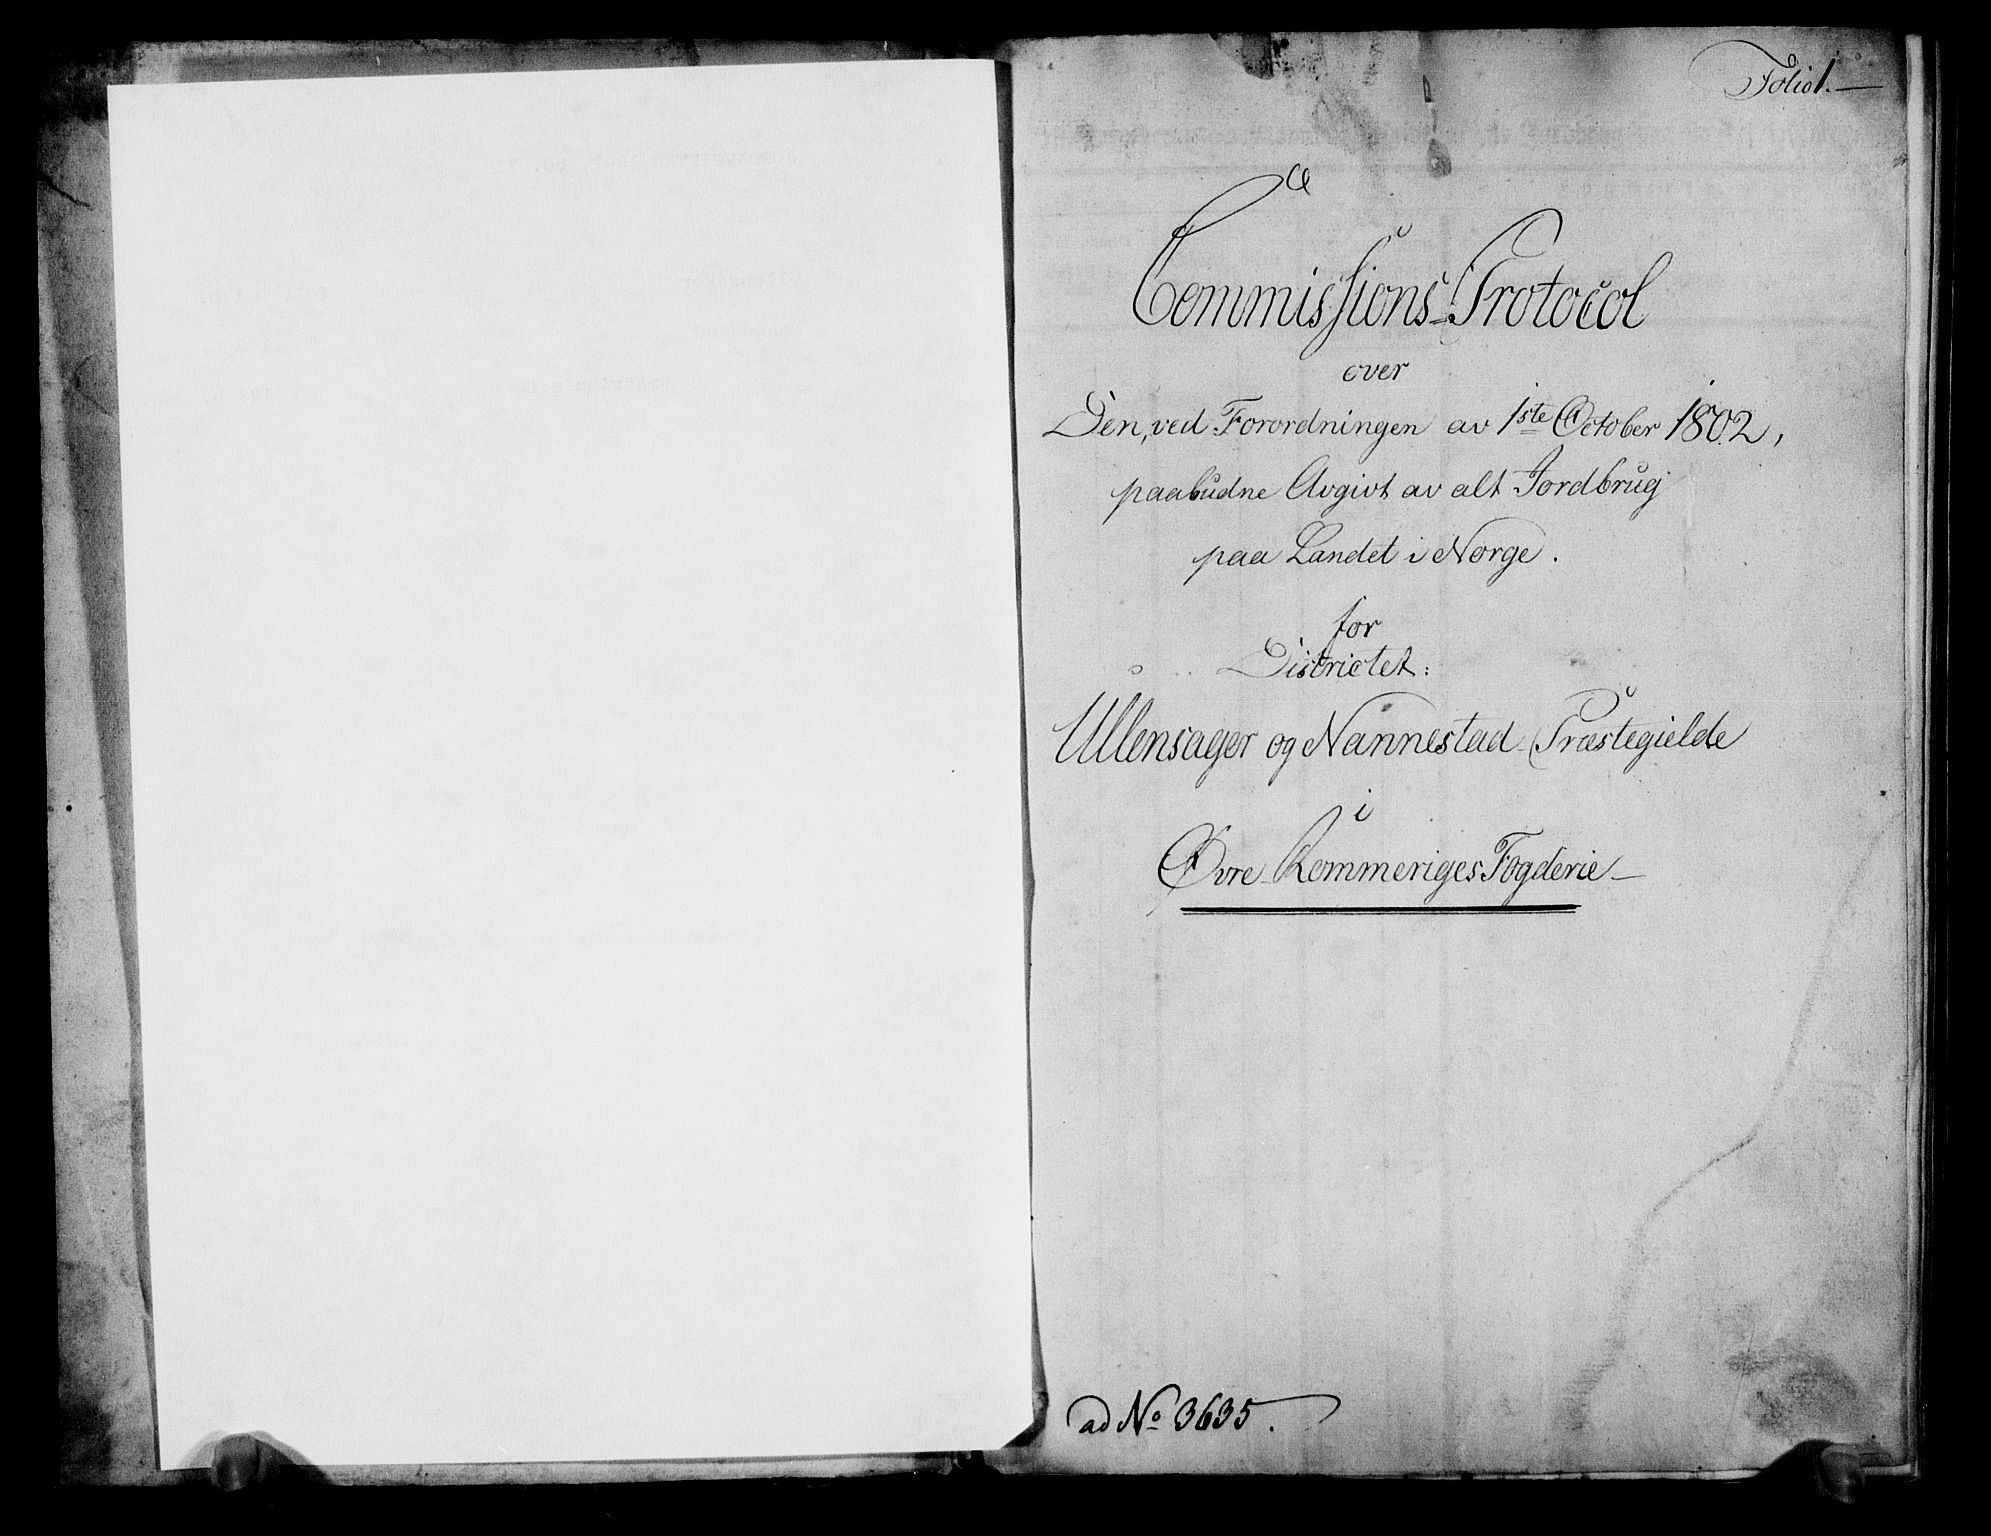 Folio 1.
Commissions-Protocol
over
Den, ved Forordningen av 1ste October 1802,
paabudne Avgivt av alt Jordbrug
paa Landet i Norge.
for
Districtet:
Ullensager og Nannestad Præstegielde
i
Øvre Rommeriges Fogderie
ad No 3635.